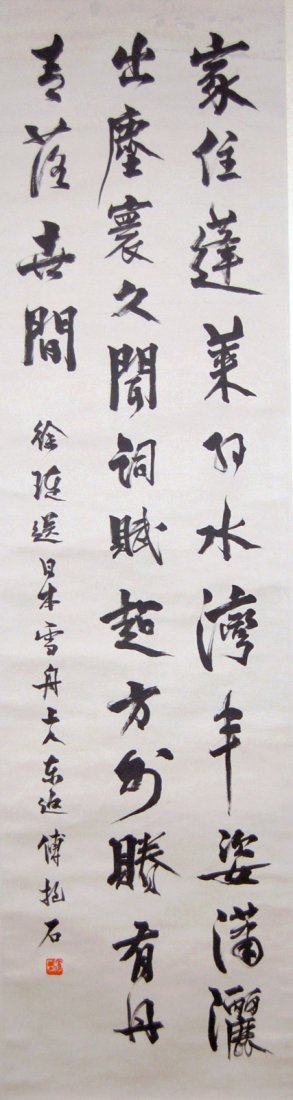 家住蓬萊弱水灣丰姿瀟灑
出塵寰久聞詞賦超方外賸有丹
青落世間
徐璉送日本雪舟上人东 傅抱石